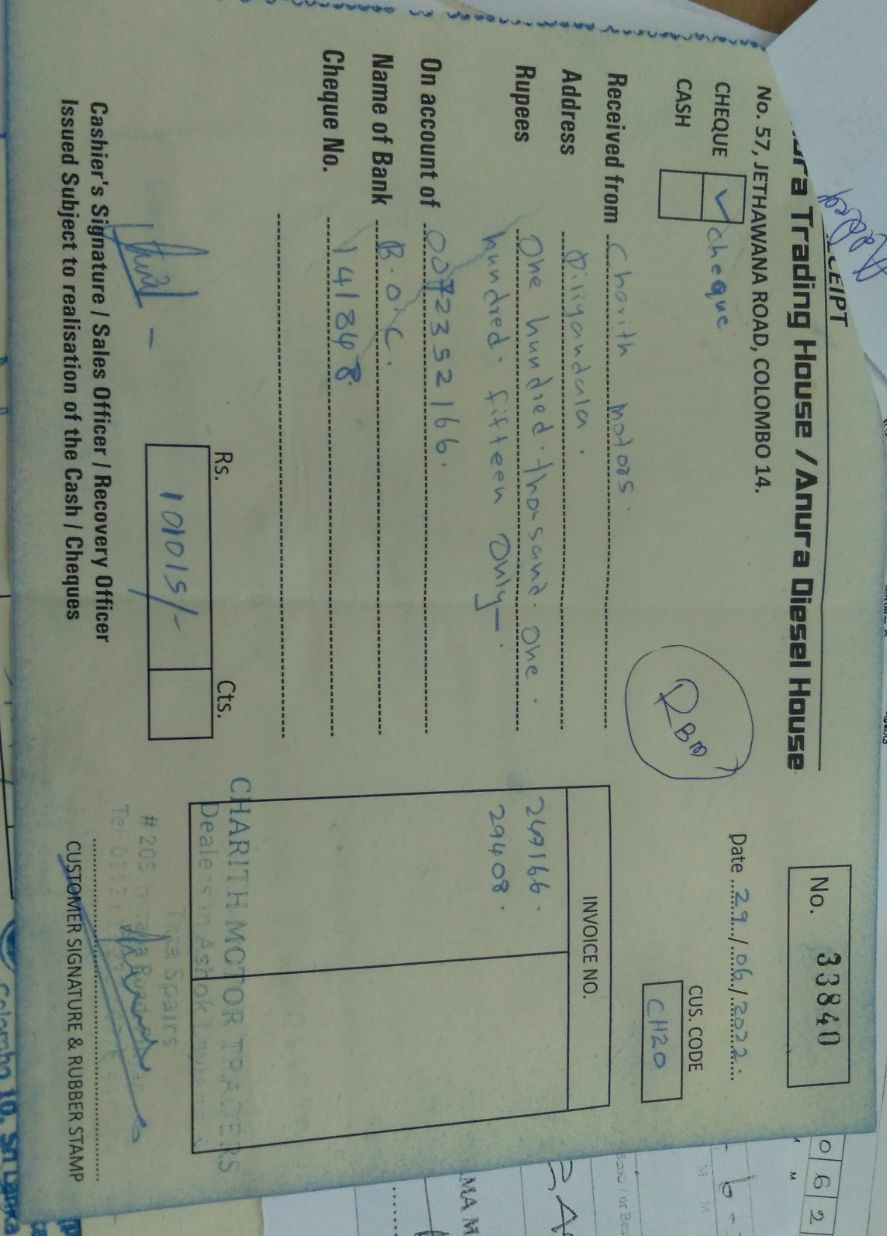 CEIPT
ura Trading House / Anura Diesel House
No. 57, JETHAWANA ROAD, COLOMBO 14.
No. 33840
Date 29/06/2022
CHEQUE ✓ cheque
CASH
CUS. CODE
CH20
Received from Charith motors.
Address Piliyandala.
Rupees One hundred thousand one
hundred fifteen Only
On account of
Name of Bank B.O.C.
Cheque No. 141848
INVOICE NO.
29408.
Rs. Cts.
101015/-
CHARITH MOTOR TRADERS
Dealers in Ashok
Spairs
# 205
Cashier's Signature / Sales Officer / Recovery Officer
Issued Subject to realisation of the Cash / Cheques
CUSTOMER SIGNATURE & RUBBER STAMP
0 6 2
MAM
Colombo 10, Sri Lanka